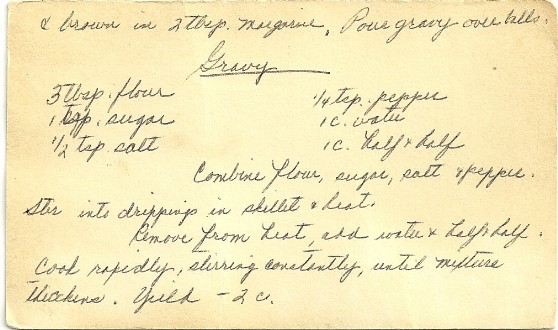 & brown in 2 tbsp. margarine. Pour gravy over balls.
Gravy
3 tbsp. flour 1/4 tsp. pepper
1 tsp. sugar 1 c. water
1/2 tsp. salt 1 c. half & half
Combine flour, sugar, salt & pepper.
Stir into drippings in skillet & heat.
Remove from heat, add water & half & half.
Cook rapidly, stirring constantly, until mixture
thickens. Yield - 2 c.